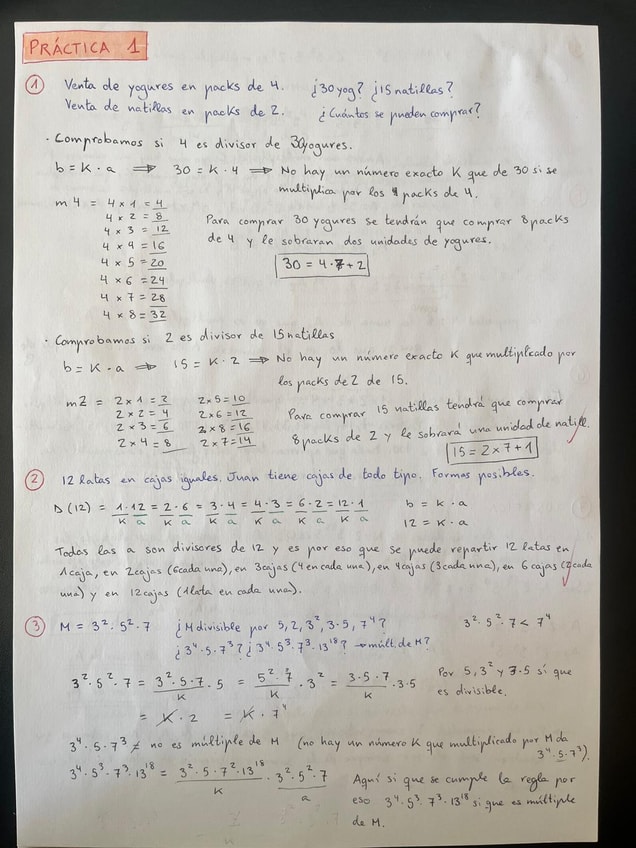 PRÁCTICA 1
① Venta de yogures en packs de 4. ¿30 yog? ¿15 natillas?
Venta de natillas en packs de 2. ¿Cuántos se pueden comprar?
· Comprobamos si 4 es divisor de 30 yogures.
b = K · a ⇒ 30 = K · 4 ⇒ No hay un número exacto K que de 30 si se
multiplica por los 4 packs de 4.
m 4 = 4 x 1 = 4
4 x 2 = 8
4 x 3 = 12
4 x 4 = 16
4 x 5 = 20
4 x 6 = 24
4 x 7 = 28
4 x 8 = 32
Para comprar 30 yogures se tendrán que comprar 8 packs
de 4 y le sobraran dos unidades de yogures.
30 = 4 · 7 + 2
· Comprobamos si 2 es divisor de 15 natillas
b = K · a ⇒ 15 = K · 2 ⇒ No hay un número exacto K que multiplicado por
los packs de 2 de 15.
m2 = 2 x 1 = 2 2 x 5 = 10
2 x 2 = 4 2 x 6 = 12
2 x 3 = 6 2 x 8 = 16
2 x 4 = 8 2 x 7 = 14
Para comprar 15 natillas tendrá que comprar
8 packs de 2 y le sobrará una unidad de natill.
15 = 2 x 7 + 1
② 12 latas en cajas iguales. Juan tiene cajas de todo tipo. Formas posibles.
D (12) = 1 · 12 = 2 · 6 = 3 · 4 = 4 · 3 = 6 · 2 = 12 · 1 b = K · a
K a K a K a K a K a K a 12 = K · a
Todas las a son divisores de 12 y es por eso que se puede repartir 12 latas en
1 caja, en 2 cajas (6 cada una), en 3 cajas (4 en cada una), en 4 cajas (3 cada una), en 6 cajas (2 cada
una) y en 12 cajas (1 lata en cada una).
③ M = 3² · 5² · 7 ¿M divisible por 5, 2, 3², 3·5, 7⁴? 3² · 5² · 7 < 7⁴
¿3⁴ · 5 · 7³? ¿3⁴ · 5³ · 7³ · 13¹⁸? → múlt. de M?
3² · 5² · 7 = 3² · 5 · 7 · 5 = 5² · 7 · 3² = 3 · 5 · 7 · 3·5
K K K
Por 5, 3² y 3·5 sí que
es divisible.
= K · 2 = K · 7⁴
3⁴ · 5 · 7³ ≠ no es múltiple de M (no hay un número K que multiplicado por M da
3⁴ · 5 · 7³).
3⁴ · 5³ · 7³ · 13¹⁸ = 3² · 5 · 7² · 13¹⁸ · 3² · 5² · 7
K a
Aquí si que se cumple la regla por
eso 3⁴ · 5³ · 7³ · 13¹⁸ si que es múltiple
de M.